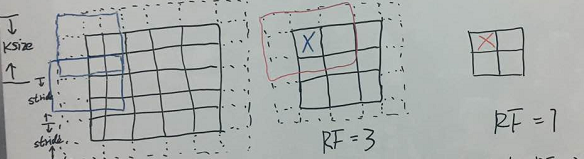 ksize
stride
stride
X
RF = 3
X
RF = 7